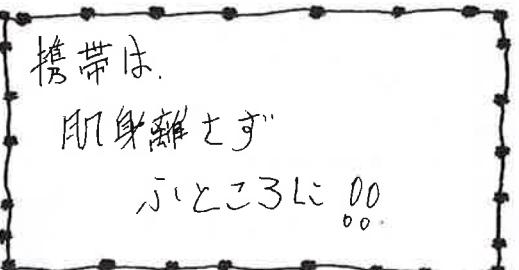 携帯は、
肌身離さず
ふところに!!